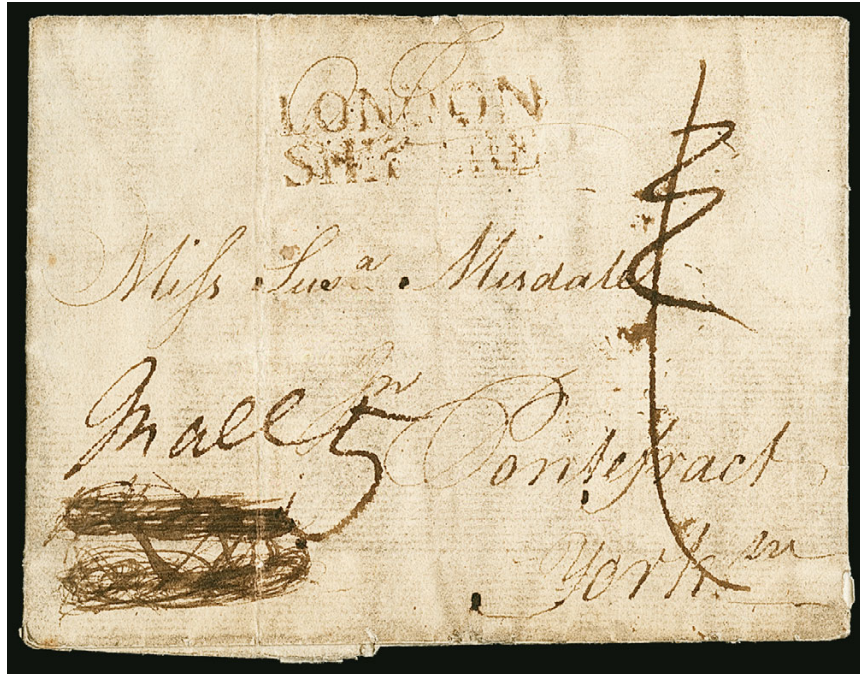 LONDON
SHIP LRE
Miſs Susª. Misdale
In all 5
Pontefract
York